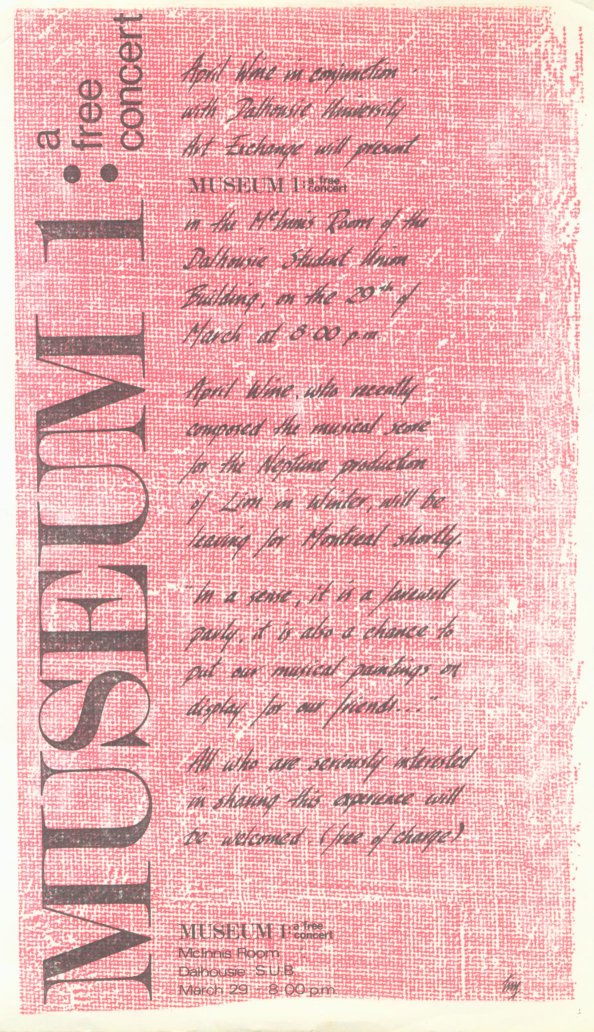 MUSEUM 1: a free concert
April Wine in conjunction
with Dalhousie University
Art Exchange will present
MUSEUM 1: a free concert
in the McInnis Room of the
Dalhousie Student Union
Building, on the 29th of
March at 8:00 p.m.
April Wine, who recently
composed the musical score
for the Neptune production
of Lion in Winter, will be
leaving for Montreal shortly.
"In a sense, it is a farewell
party, it is also a chance to
put our musical paintings on
display for our friends..."
All who are seriously interested
in sharing this experience will
be welcomed. (free of charge)
MUSEUM 1: a free concert
McInnis Room
Dalhousie S.U.B.
March 29 - 8:00 p.m.